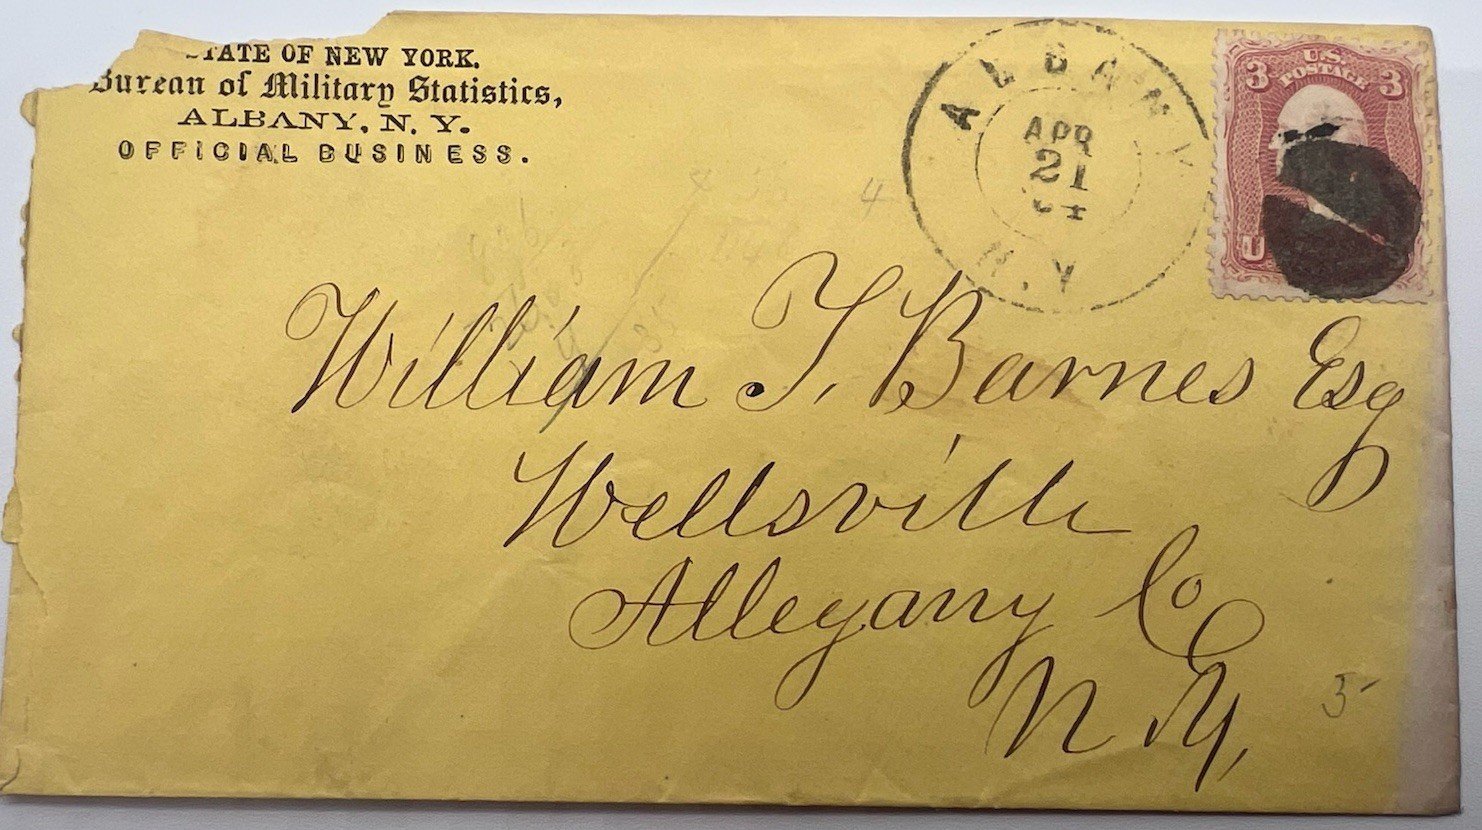 STATE OF NEW YORK.
Bureau of Military Statistics,
ALBANY, N. Y.
OFFICIAL BUSINESS.
ALBANY
APR
21
N.Y
3 U.S. 3
POSTAGE
U
4
William T. Barnes Esq
Wellsville
Allegany Co
N.Y.
5